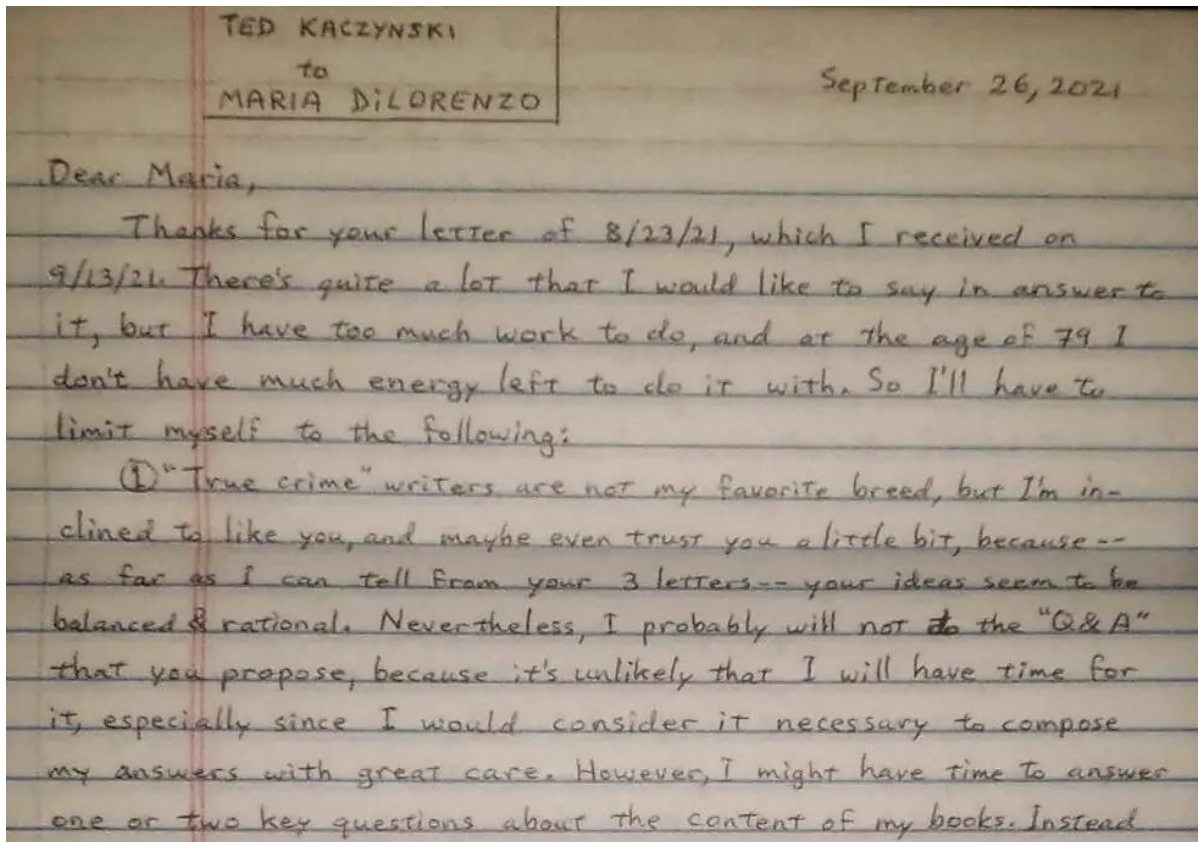 TED KACZYNSKI
to
MARIA DiLORENZO
September 26, 2021
Dear Maria,
Thanks for your letter of 8/23/21, which I received on
9/13/21. There's quite a lot that I would like to say in answer to
it, but I have too much work to do, and at the age of 79 I
don't have much energy left to do it with. So I'll have to
limit myself to the following:
① "True crime" writers are not my favorite breed, but I'm in-
clined to like you, and maybe even trust you a little bit, because --
as far as I can tell from your 3 letters -- your ideas seem to be
balanced & rational. Nevertheless, I probably will not do the "Q & A"
that you propose, because it's unlikely that I will have time for
it, especially since I would consider it necessary to compose
my answers with great care. However, I might have time to answer
one or two key questions about the content of my books. Instead